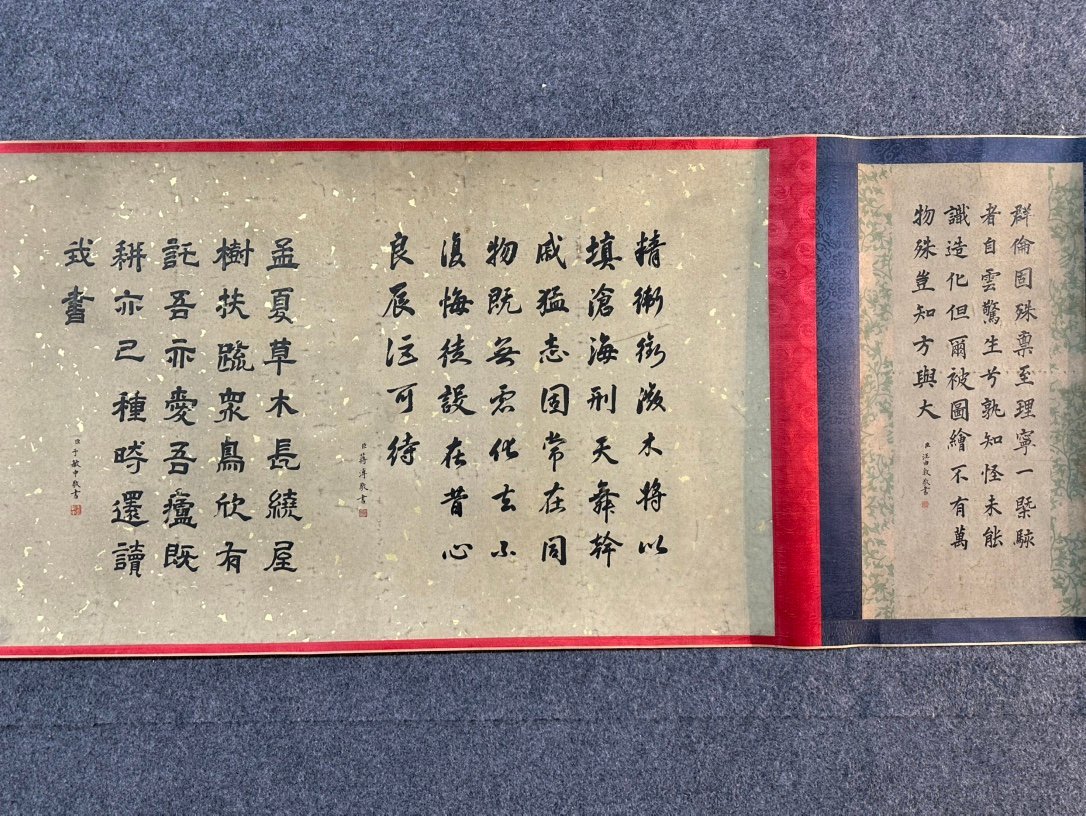 群倫固殊禀至理寧一槩駭
者自雲驚生兮孰知怪未能
識造化但爾被圖繪不有萬
物殊豈知方與大
臣汪由敦敬書
精衛銜微木將以
填滄海刑天舞幹
戚猛志固常在同
物既無慮化去不
復悔徒設在昔心
良辰詎可待
臣蔣溥敬書
孟夏草木長繞屋
樹扶疏衆鳥欣有
託吾亦愛吾廬既
耕亦已種時還讀
我書
臣于敏中敬書